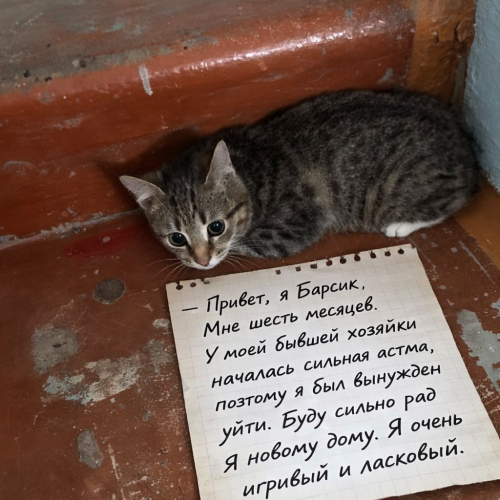 — Привет, я Барсик,
Мне шесть месяцев.
У моей бывшей хозяйки
началась сильная астма,
поэтому я был вынужден
уйти. Буду сильно рад
Я новому дому. Я очень
игривый и ласковый.